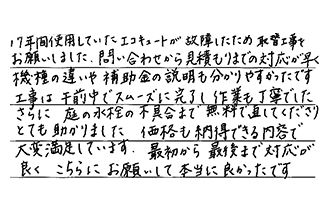 17年間使用していたエコキュートが故障したため取替工事を
お願いしました。問い合わせから見積もりまでの対応が早く
機種の違いや補助金の説明も分かりやすかったです
工事は午前中でスムーズに完了し作業も丁寧でした
さらに庭の水栓の不具合まで無料で直してくださり
とても助かりました 価格も納得できる内容で
大変満足しています。最初から最後まで対応が
良く こちらにお願いして本当に良かったです